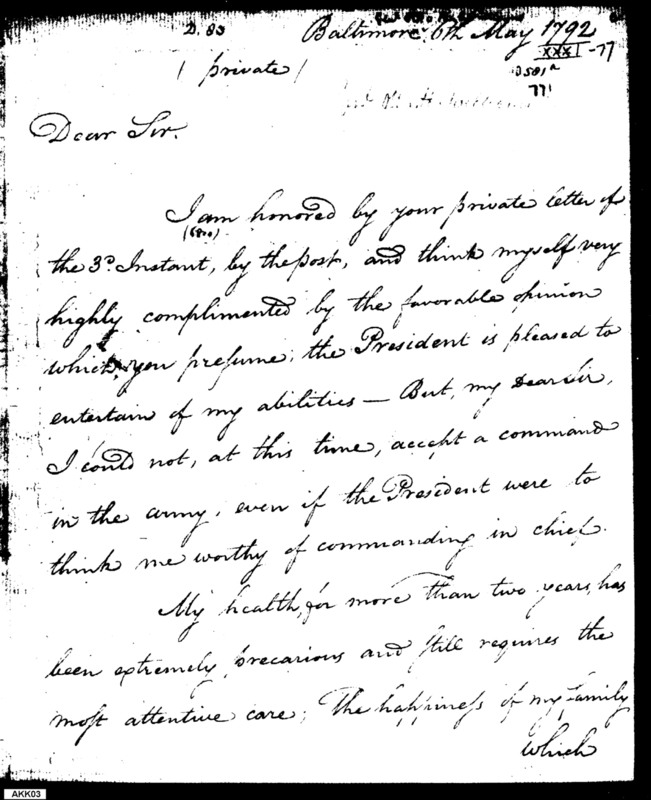 D. 83
Baltimore. 6th. May 1792
XXXI -77
( private )
D581a
771
Dear Sir.
I am honored by your private letter of
the 3d. Instant, by the post, and think myself very
highly complimented by the favorable opinion
which, you presume, the President is pleased to
entertain of my abilities — But, my Dear Sir,
I could not, at this time, accept a command
in the army, even if the President were to
think me worthy of commanding in chief.
My health, for more than two years, has
been extremely precarious and still requires the
most attentive care; The happiness of my family
which
AKK03